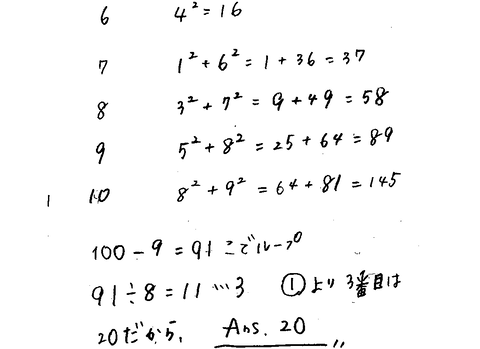 6 4² = 16
7 1² + 6² = 1 + 36 = 37
8 3² + 7² = 9 + 49 = 58
9 5² + 8² = 25 + 64 = 89
1 10 8² + 9² = 64 + 81 = 145
100 - 9 = 91 ここでループ
91 ÷ 8 = 11 … 3 ①より 3番目は
20だから、 Ans. 20